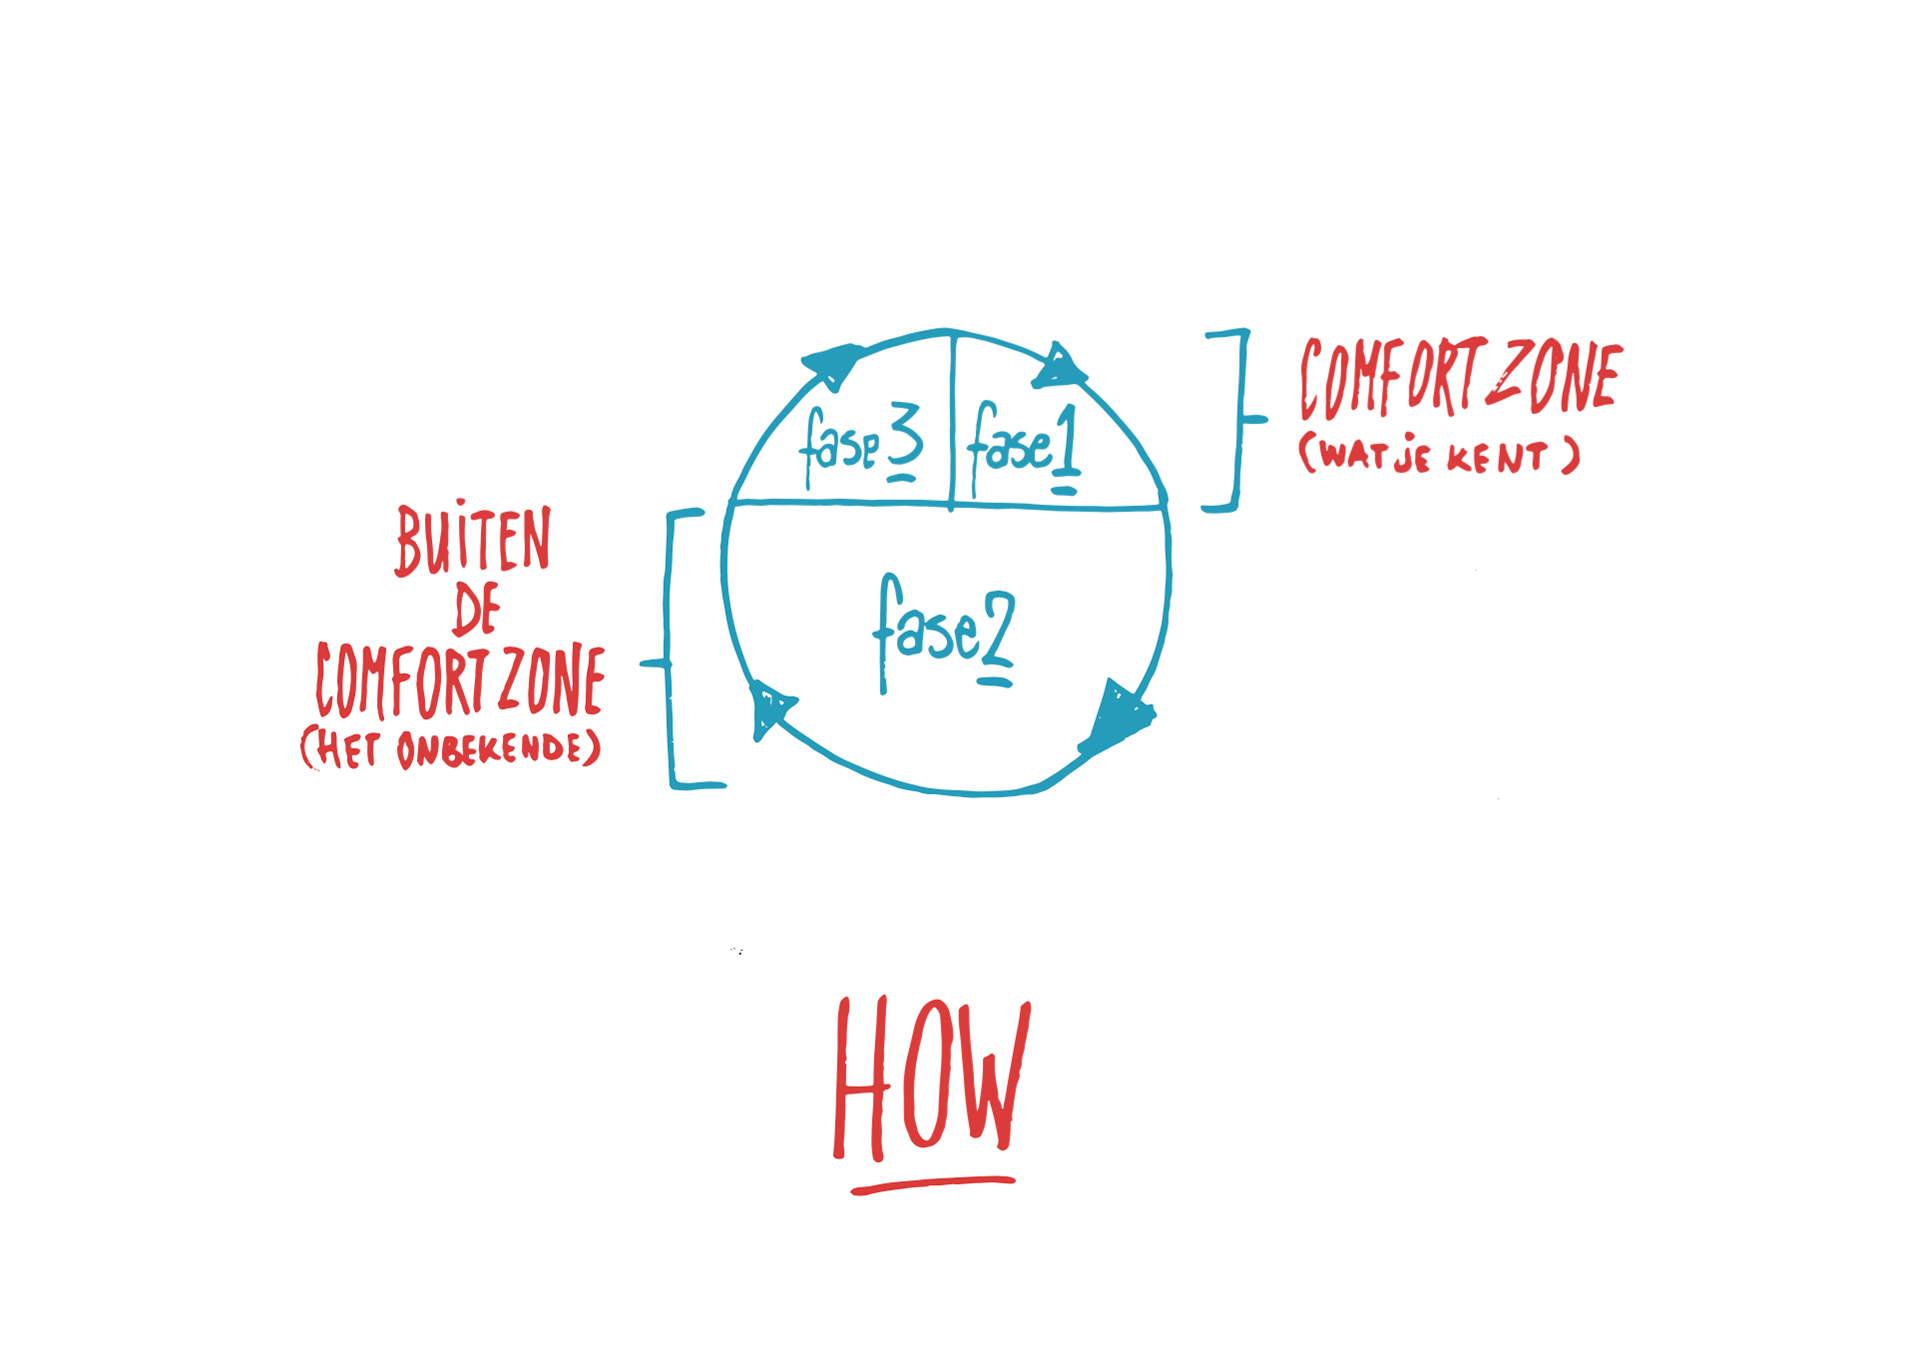 fase 3
fase 1
COMFORT ZONE
(WAT JE KENT)
BUITEN
DE
COMFORT ZONE
(HET ONBEKENDE)
fase 2
HOW